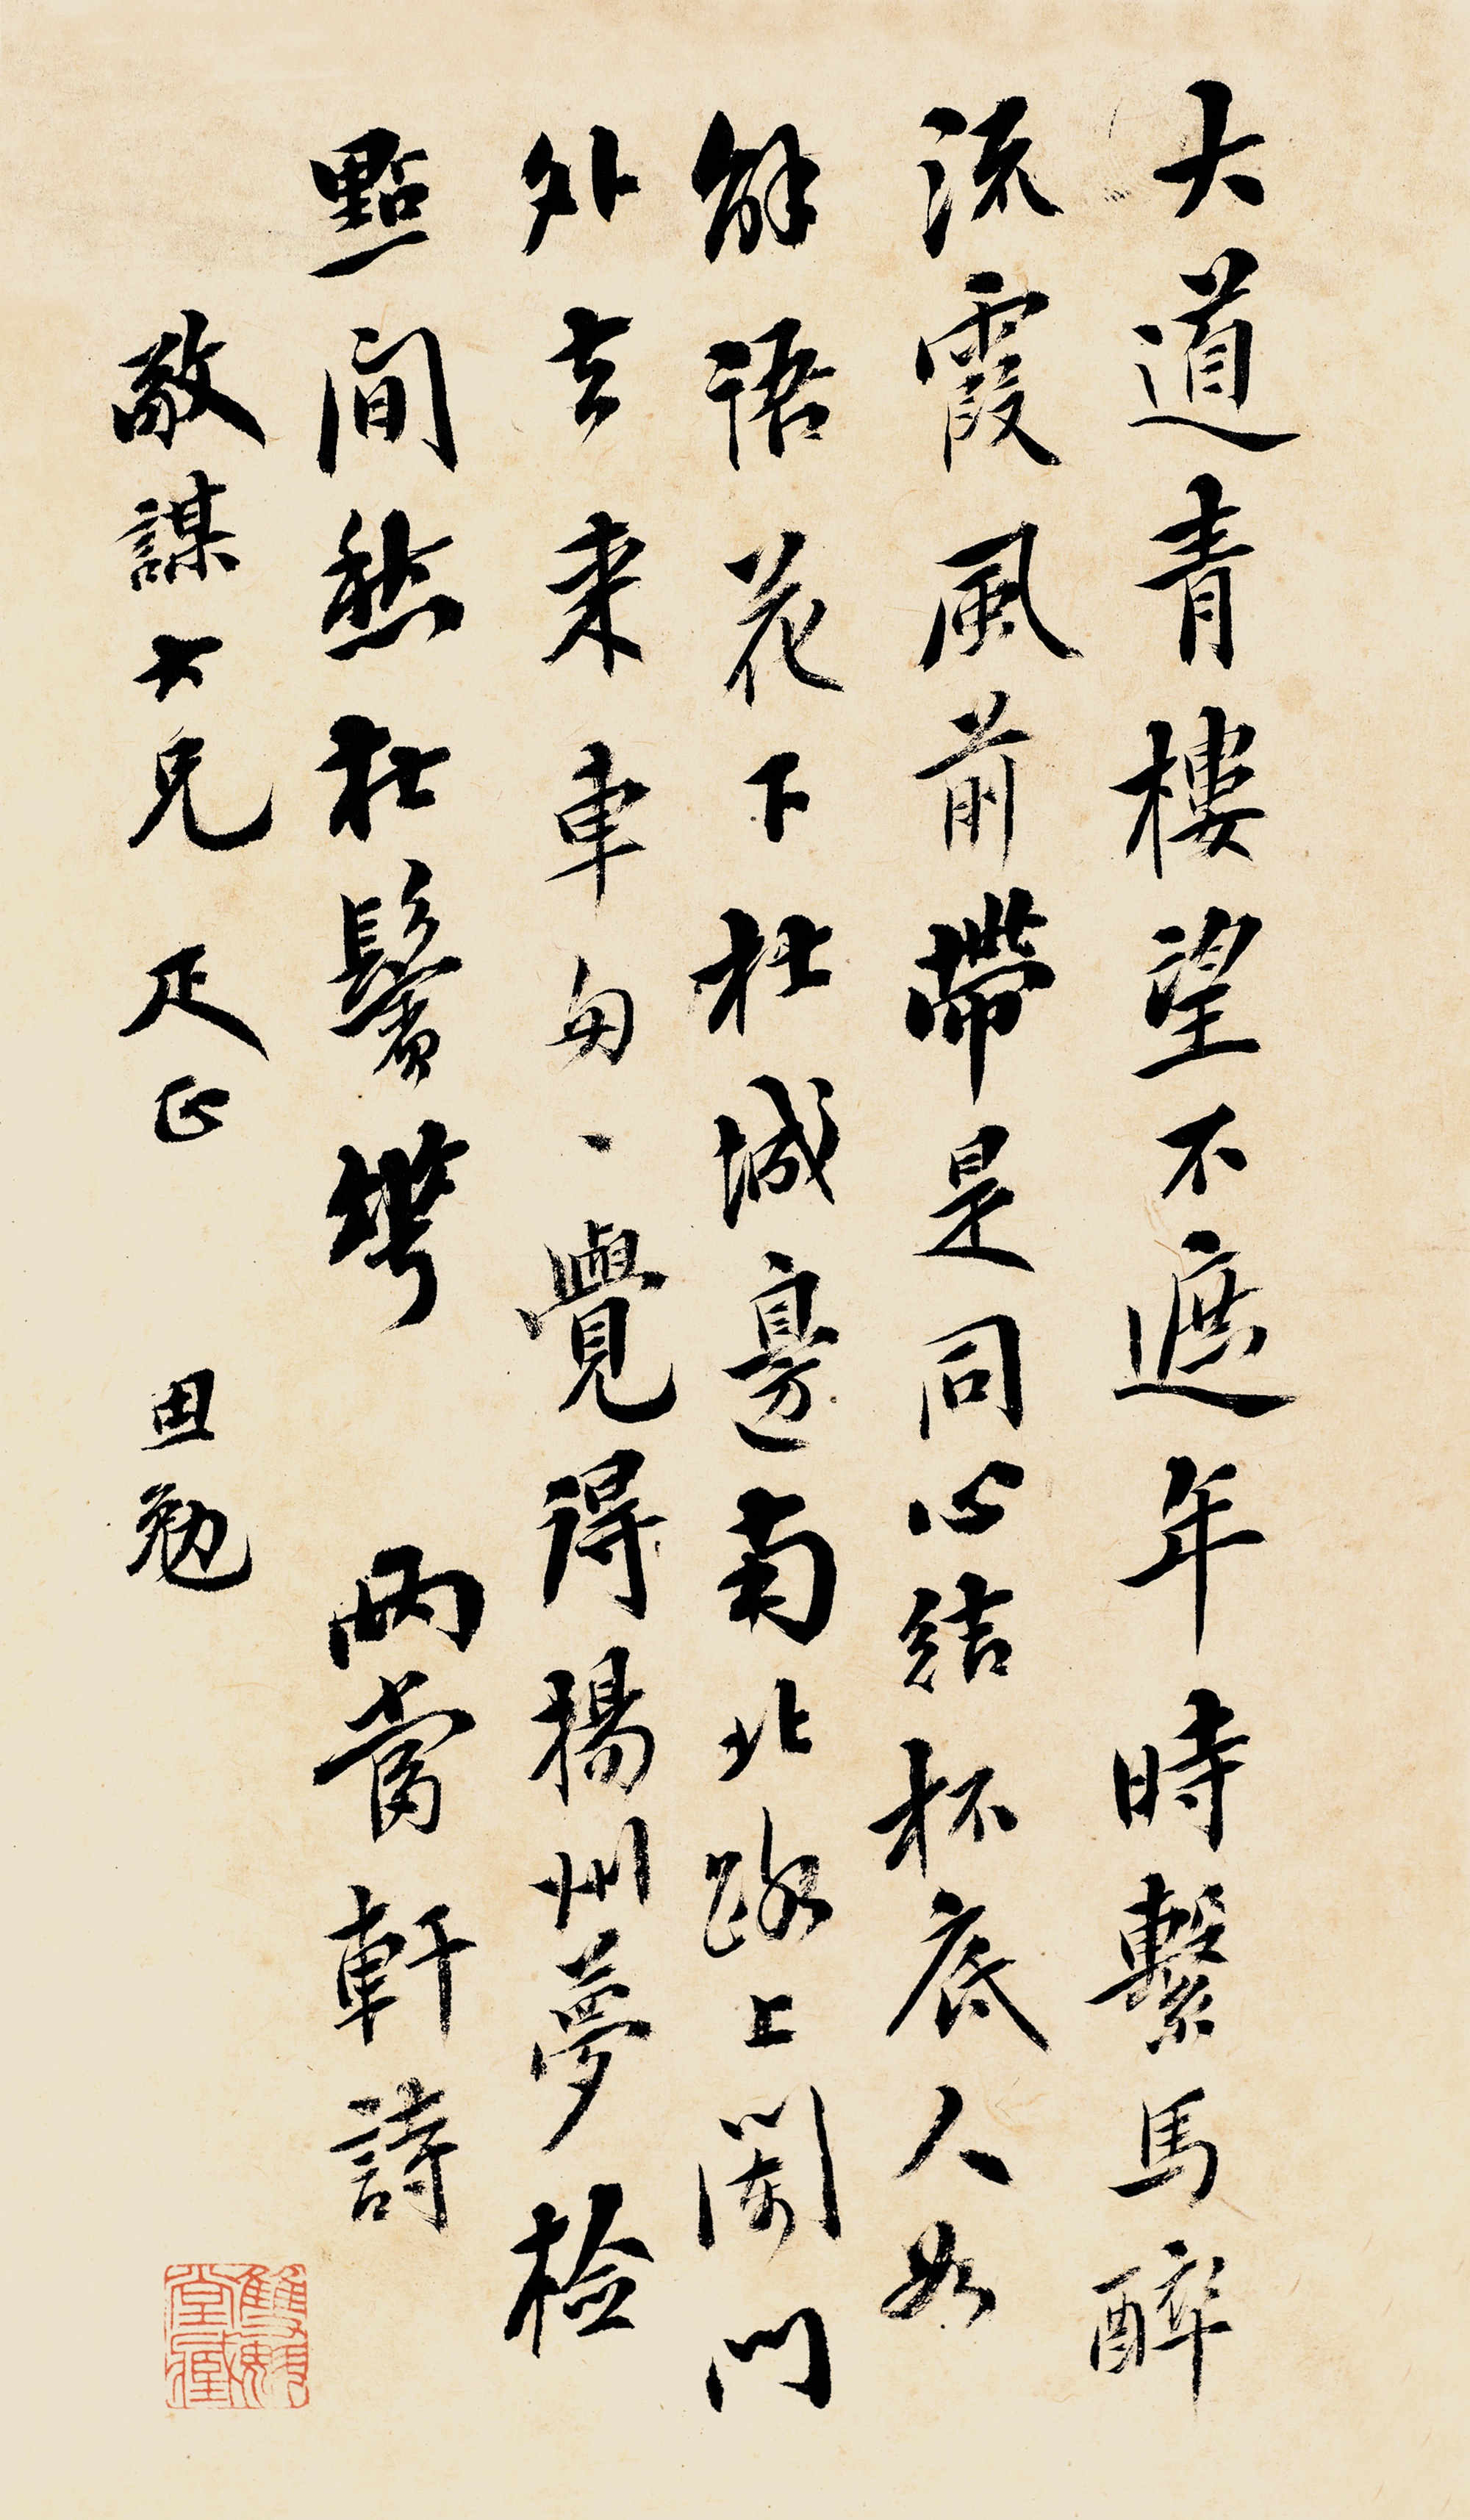 大道青樓望不遮年時繫馬醉
流霞風前帶是同心結杯底人如
解語花下杜城邊南北路上闌門
外去來車匆、覺得揚州夢檢
點閒愁在鬢華　兩當軒詩
敬謀大兄疋正　田勉